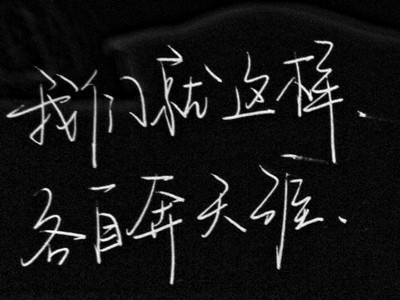 我们就这样、
各自奔天涯、